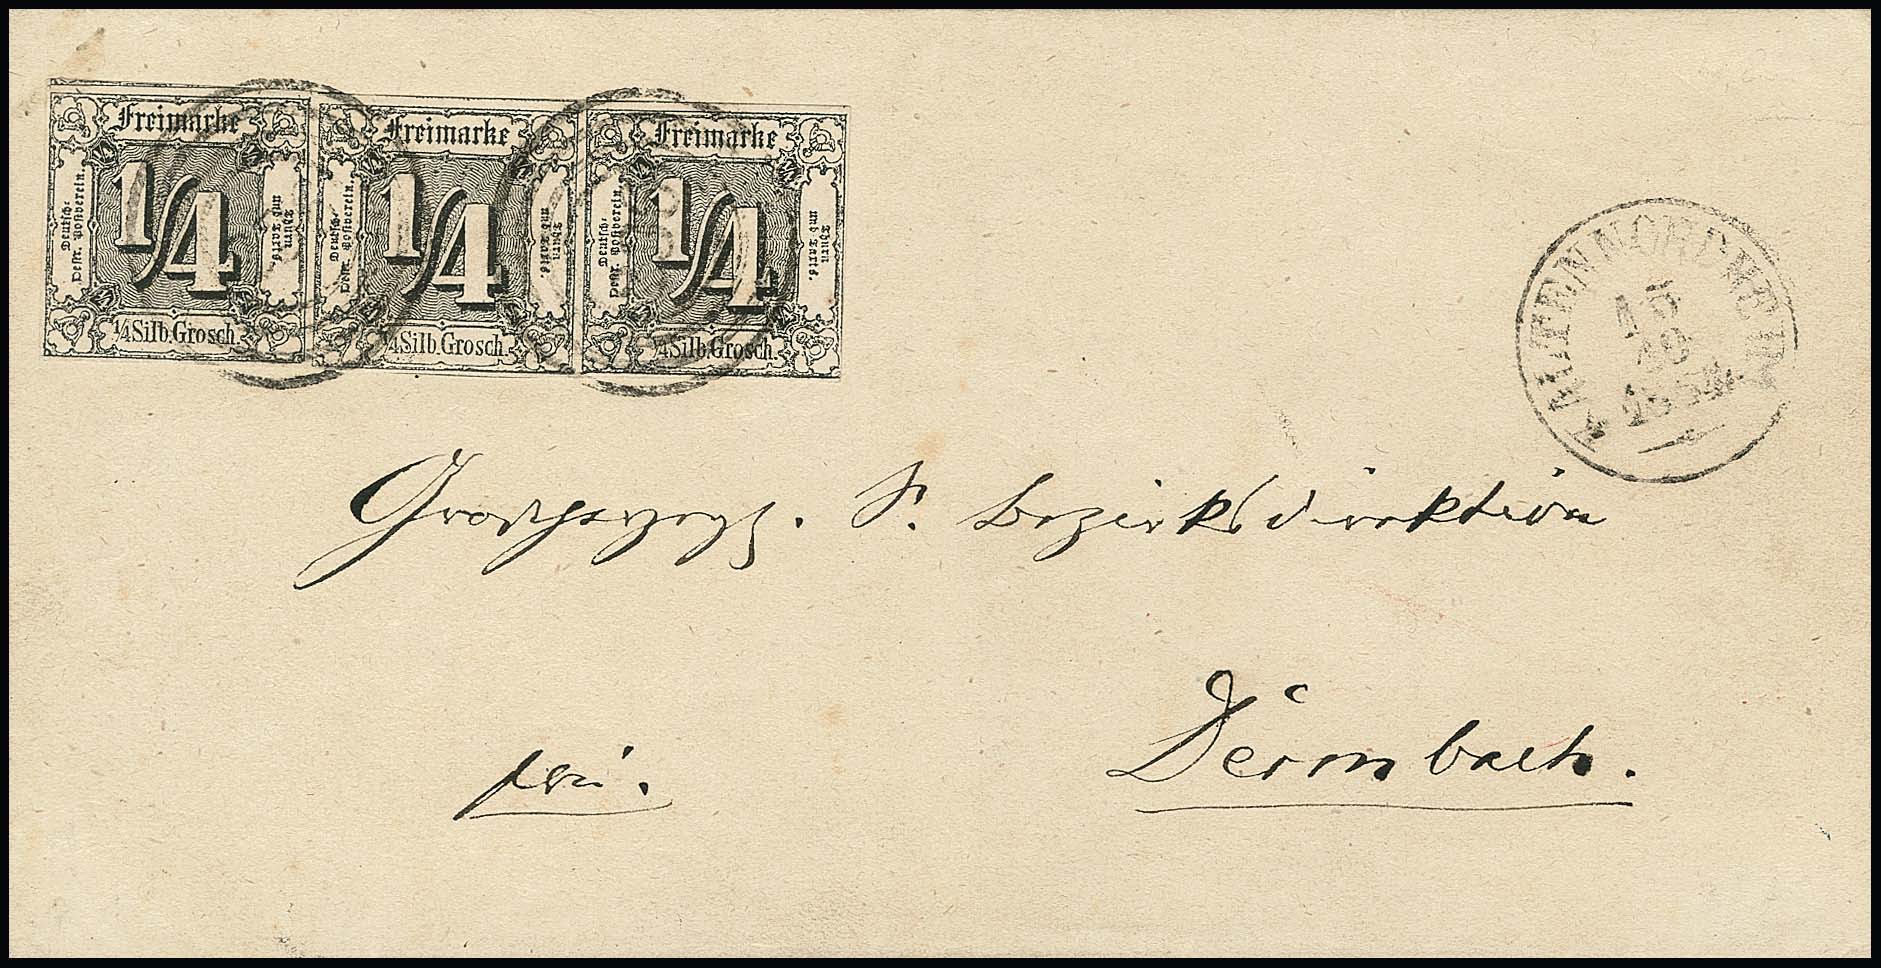 Freimarke
Deutsch-Oestr. Postverein.
1/4
Thurn und Taxis.
1/4 Silb. Grosch.
Freimarke
Deutsch-Oestr. Postverein.
1/4
Thurn und Taxis.
1/4 Silb. Grosch.
Freimarke
Deutsch-Oestr. Postverein.
1/4
Thurn und Taxis.
1/4 Silb. Grosch.
KALTENNORDHEIM
15
10
1864
Großherzogl. S. Bezirksdirektion
Dermbach.
frei.